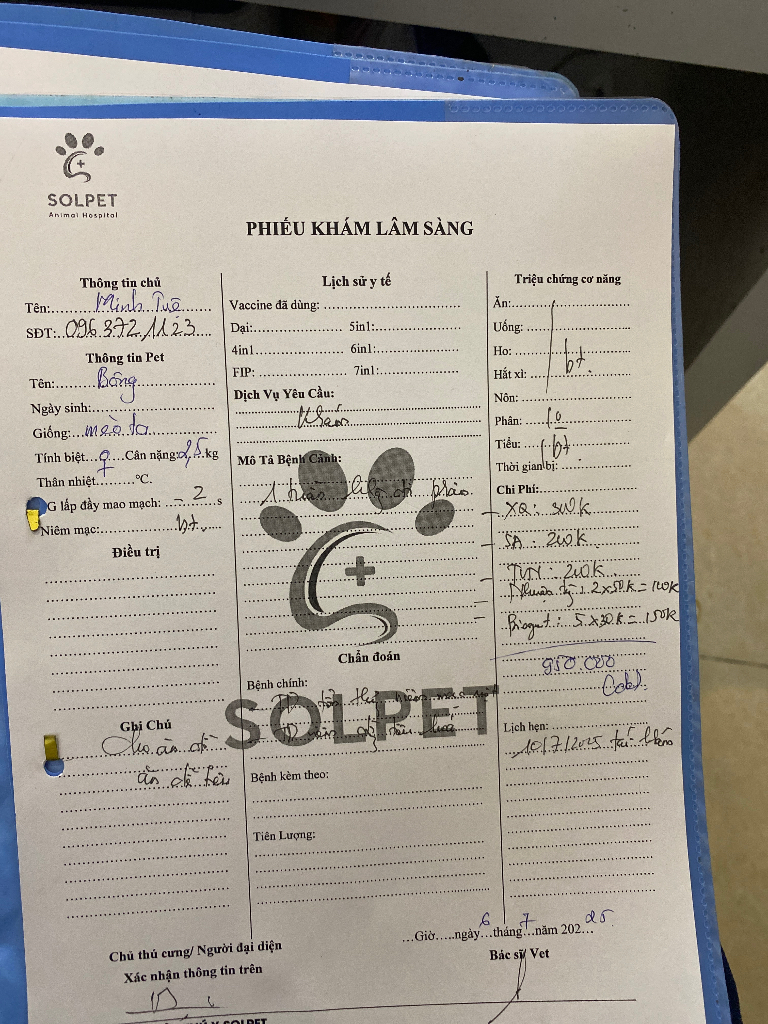 SOLPET
Animal Hospital
PHIẾU KHÁM LÂM SÀNG
Thông tin chủ
Tên: Minh Tuệ
SĐT: 096 372 1123
Thông tin Pet
Tên: Bông
Ngày sinh:
Giống: mèo ta
Tính biệt ♀ Cân nặng: 2,5 kg
Thân nhiệt °C.
G lấp đầy mao mạch: - 2 s
Niêm mạc: bt.
Điều trị
Ghi Chú
Cho ăn đồ
ăn dễ tiêu
Lịch sử y tế
Vaccine đã dùng:
Dại: 5in1:
4in1 6in1:
FIP: 7in1:
Dịch Vụ Yêu Cầu:
Khám
Mô Tả Bệnh Cảnh:
1 tuần đi
Chẩn đoán
Bệnh chính:
SOLPET
Bệnh kèm theo:
Tiên Lượng:
Triệu chứng cơ năng
Ăn:
Uống:
Ho: bt.
Hắt xì:
Nôn:
Phân:
Tiểu: bt
Thời gian bị:
Chi Phí:
- XQ: 300k
- SA: 200k
- 200k
2x50k = 100k
- 5x30k = 150k
950.000
Lịch hẹn:
10/7/2025 tái khám
Giờ ngày 6 tháng 7 năm 202 25
Chủ thú cưng/ Người đại diện
Xác nhận thông tin trên
Bác sĩ Vet
SOLPET